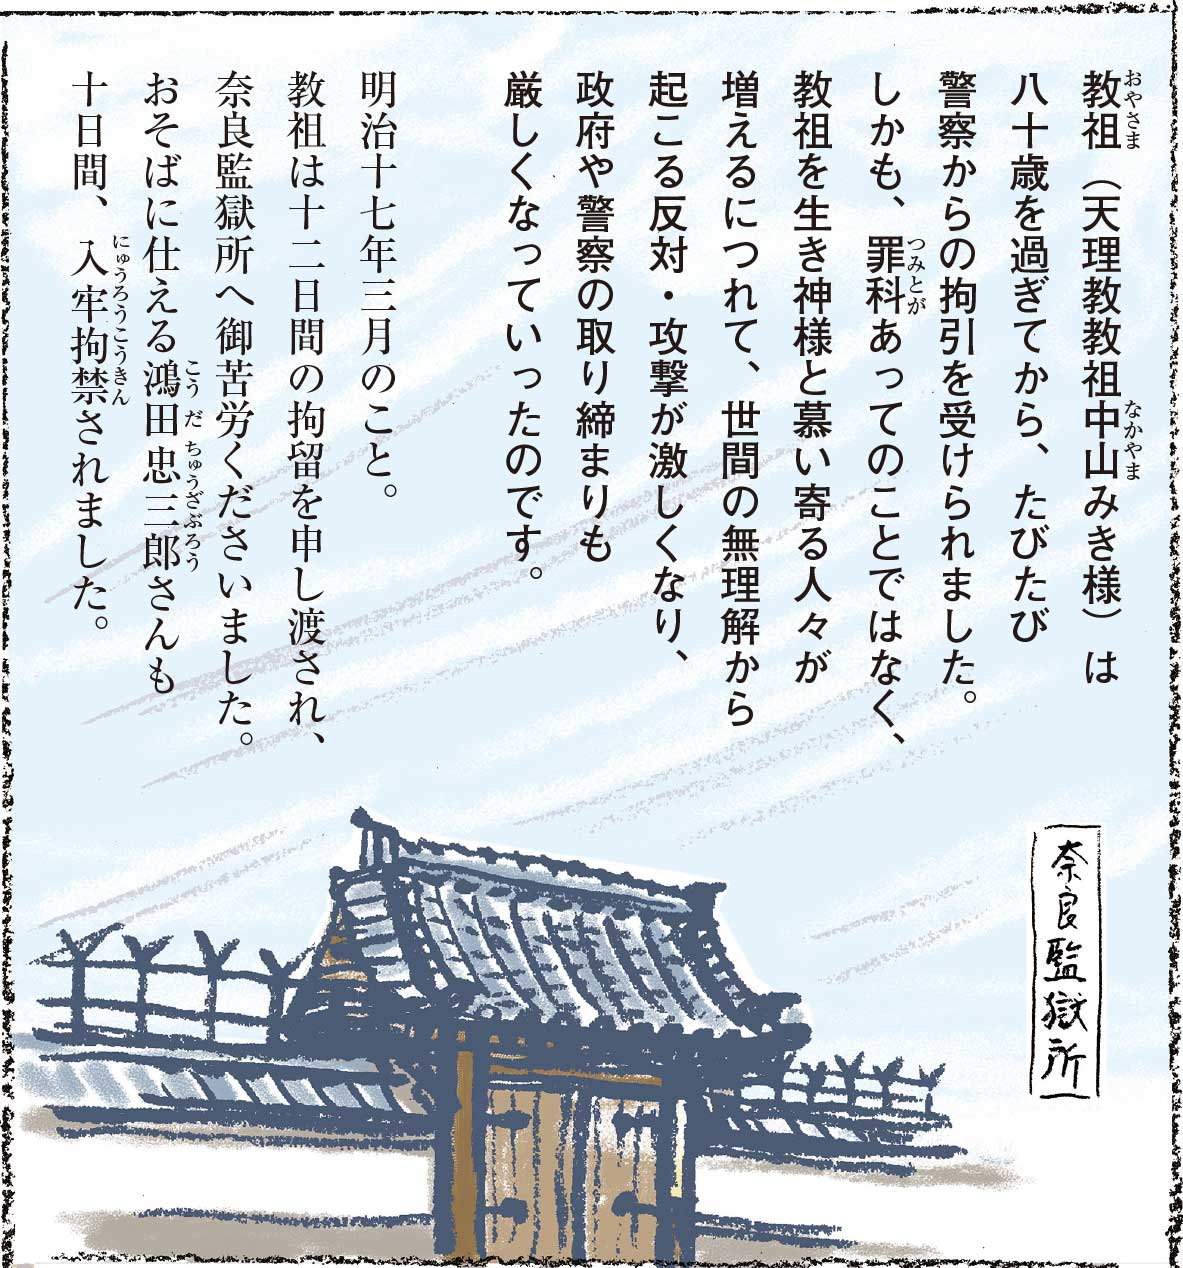 教祖（天理教教祖中山みき様）は
おやさま
なかやま
八十歳を過ぎてから、たびたび
警察からの拘引を受けられました。
しかも、罪科あってのことではなく、
つみとが
教祖を生き神様と慕い寄る人々が
増えるにつれて、世間の無理解から
起こる反対・攻撃が激しくなり、
政府や警察の取り締まりも
厳しくなっていったのです。
明治十七年三月のこと。
教祖は十二日間の拘留を申し渡され、
奈良監獄所へ御苦労くださいました。
おそばに仕える鴻田忠三郎さんも
こうだちゅうざぶろう
十日間、入牢拘禁されました。
にゅうろうこうきん
奈良監獄所